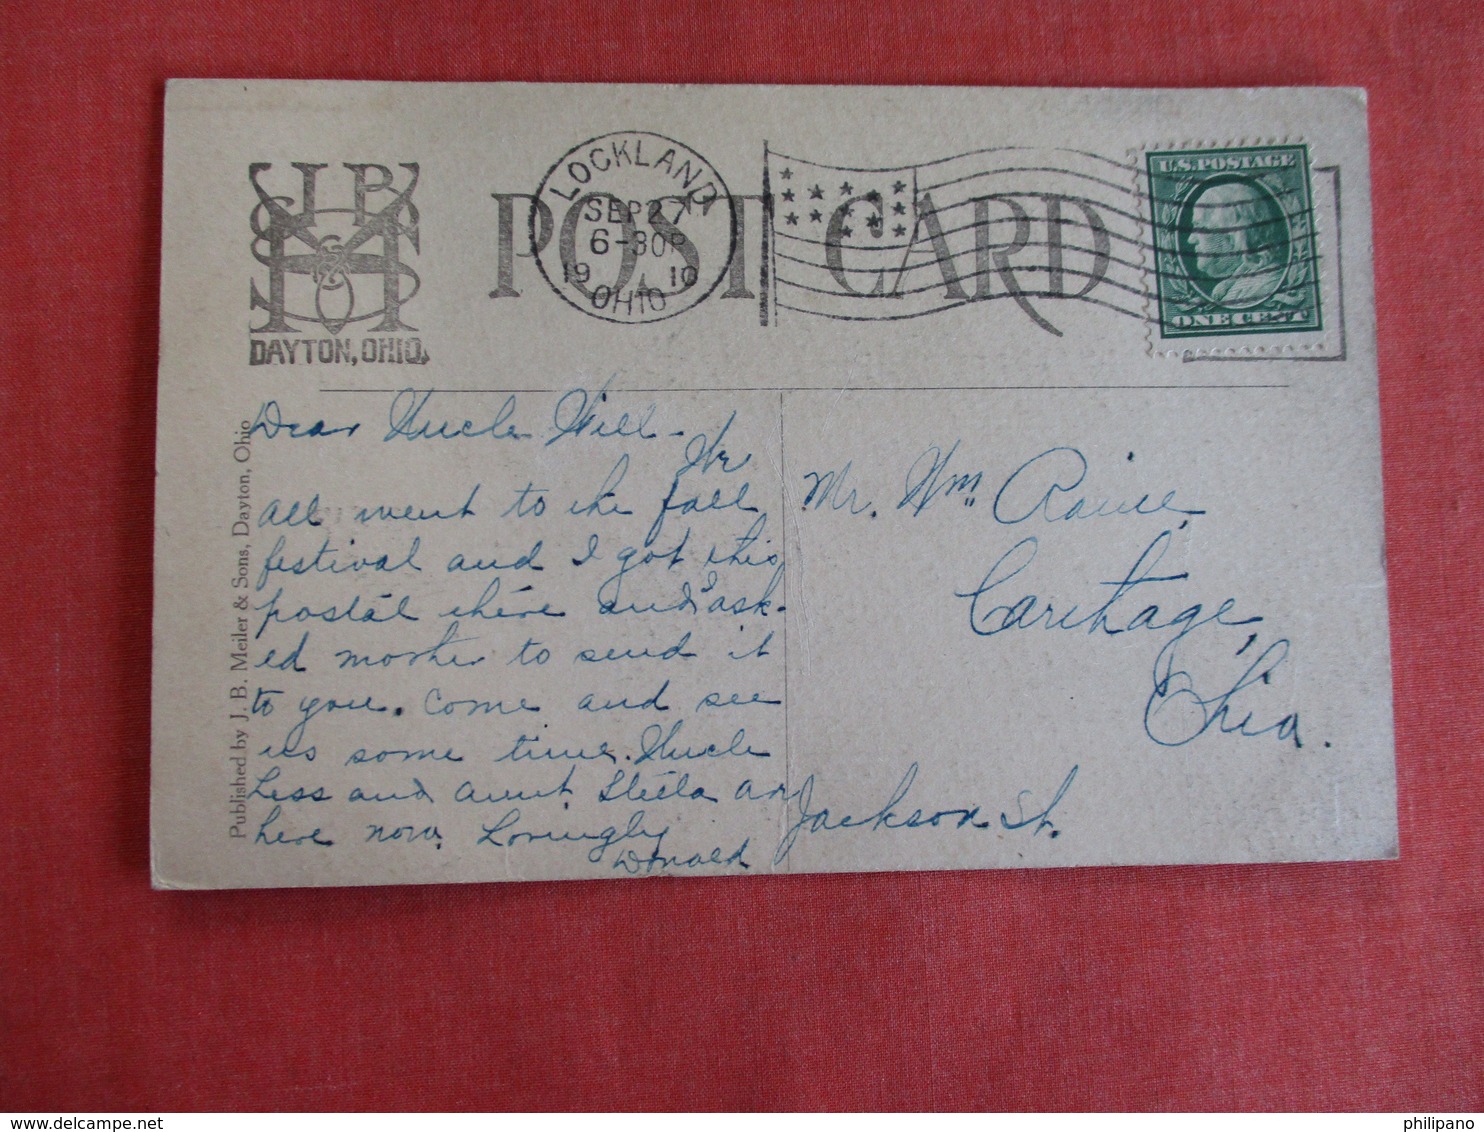 JBM & SONS
DAYTON, OHIO.
POST CARD
LOCKLAND,
SEP 27
6-30P
1910
OHIO
U.S. POSTAGE
ONE CENT
Published by J. B. Meiler & Sons, Dayton, Ohio
Dear Uncle Will -
We
all went to the fall
festival and I got this
postal there and I ask-
ed mother to send it
to you. Come and see
us some time. Uncle
Less and aunt Stella are
here now. Lovingly
Donald
Mr. Wm.
Carthage,
Ohio.
Jackson St.
philipano